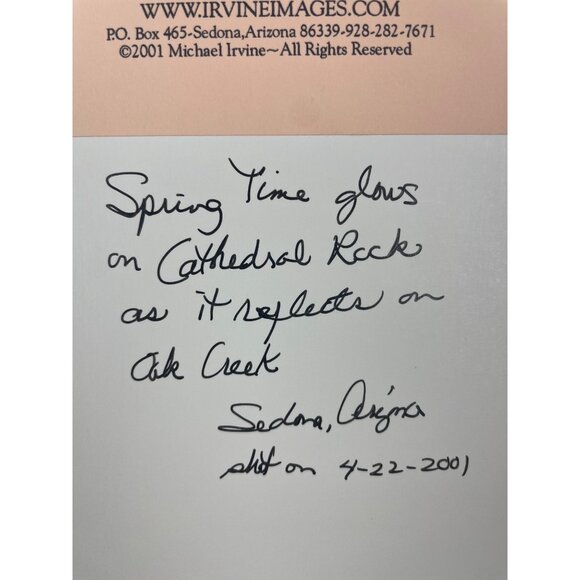 WWW.IRVINEIMAGES.COM
P.O. Box 465-Sedona,Arizona 86339-928-282-7671
©2001 Michael Irvine~All Rights Reserved
Spring Time glows
on Cathedral Rock
as it reflects on
Oak Creek
Sedona, Arizona
shot on 4-22-2001